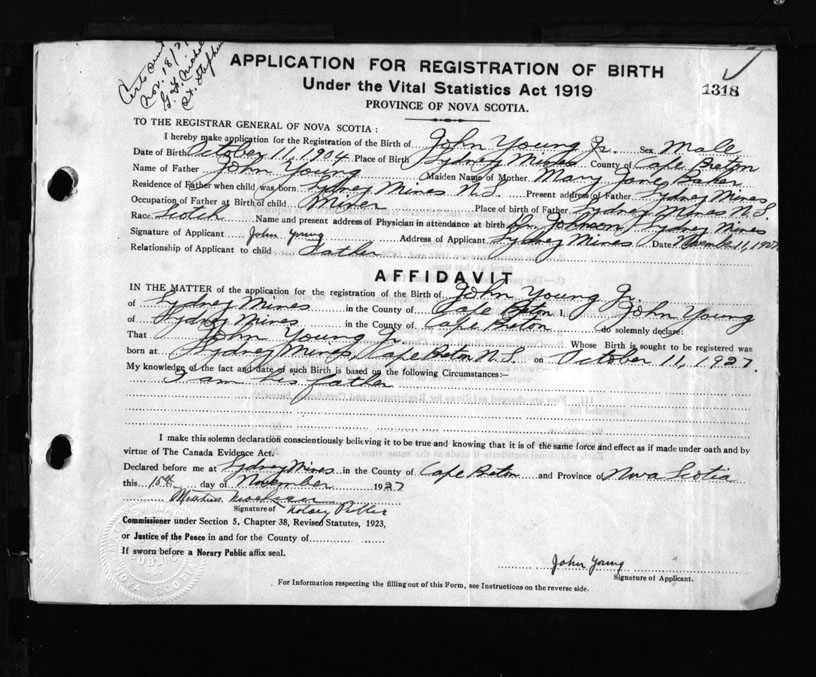 Nov. 18/27
APPLICATION FOR REGISTRATION OF BIRTH
Under the Vital Statistics Act 1919
1318
PROVINCE OF NOVA SCOTIA.
TO THE REGISTRAR GENERAL OF NOVA SCOTIA :
I hereby make application for the Registration of the Birth of John Young Jr. Sex Male
Date of Birth October 11, 1904 Place of Birth Sydney Mines County of Cape Breton
Name of Father John Young Maiden Name of Mother Mary Jane Baker
Residence of Father when child was born Sydney Mines N.S. Present address of Father Sydney Mines
Occupation of Father at Birth of child Miner Place of birth of Father Sydney Mines N.S.
Race Scotch Name and present address of Physician in attendance at birth Johnson Sydney Mines
Signature of Applicant John Young Address of Applicant Sydney Mines Date November 11, 1927
Relationship of Applicant to child Father
AFFIDAVIT
IN THE MATTER of the application for the registration of the Birth of John Young Jr.
of Sydney Mines in the County of Cape Breton I, John Young
of Sydney Mines in the County of Cape Breton do solemnly declare:
That John Young Jr. Whose Birth is sought to be registered was
born at Sydney Mines, Cape Breton N.S. on October 11, 1927.
My knowledge of the fact and date of such Birth is based on the following Circumstances:—
I am his father
I make this solemn declaration conscientiously believing it to be true and knowing that it is of the same force and effect as if made under oath and by
virtue of The Canada Evidence Act.
Declared before me at Sydney Mines in the County of Cape Breton and Province of Nova Scotia
this 15th day of November 1927
Signature of Notary Public
Commissioner under Section 5, Chapter 38, Revised Statutes, 1923,
or Justice of the Peace in and for the County of
If sworn before a Norary Public affix seal.
John Young
Signature of Applicant.
For Information respecting the filling out of this Form, see Instructions on the reverse side.